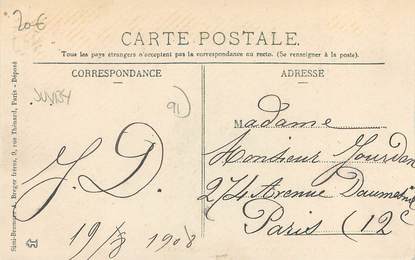 20€
CARTE POSTALE.
Tous les pays étrangers n'acceptent pas la correspondance au recto. (Se renseigner à la poste).
CORRESPONDANCE
ADRESSE
JUVISY
91
Madame
Monsieur Jourdan
274 Avenue Daumesnil
Paris (12e
J. D.
1908
Simi-Bromure A. Breger frères, 9, rue Thénard, Paris - Déposé